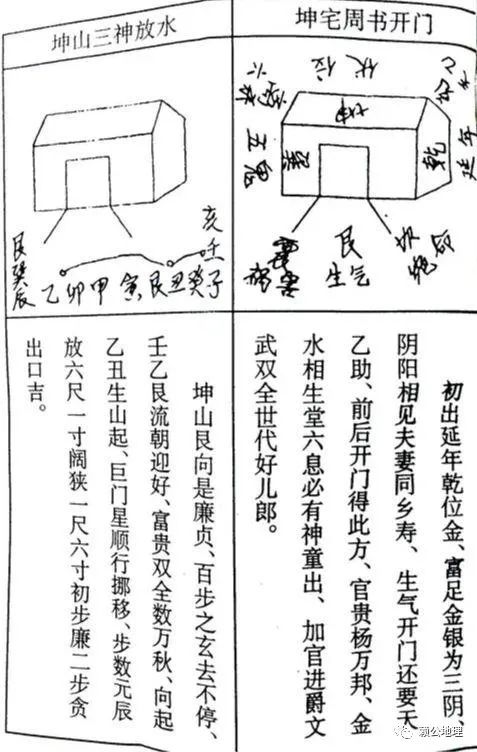 坤宅周书开门
伏位
坤
五鬼
乾
延年
艮
生气
初出延年乾位金、富足金银为三阴、
阴阳相见夫妻同乡寿、生气开门还要天
乙助、前后开门得此方、官贵杨万邦、金
水相生堂六息必有神童出、加官进爵文
武双全世代好儿郎。
坤山三神放水
亥壬
乙卯甲寅艮丑癸子
艮巽辰
坤山艮向是廉贞、百步之玄去不停、
壬乙艮流朝迎好、富贵双全数万秋、向起
乙丑生山起、巨门星顺行挪移、步数元辰
放六尺一寸阔狭一尺六寸初步廉二步贪
出口吉。
赖公地理